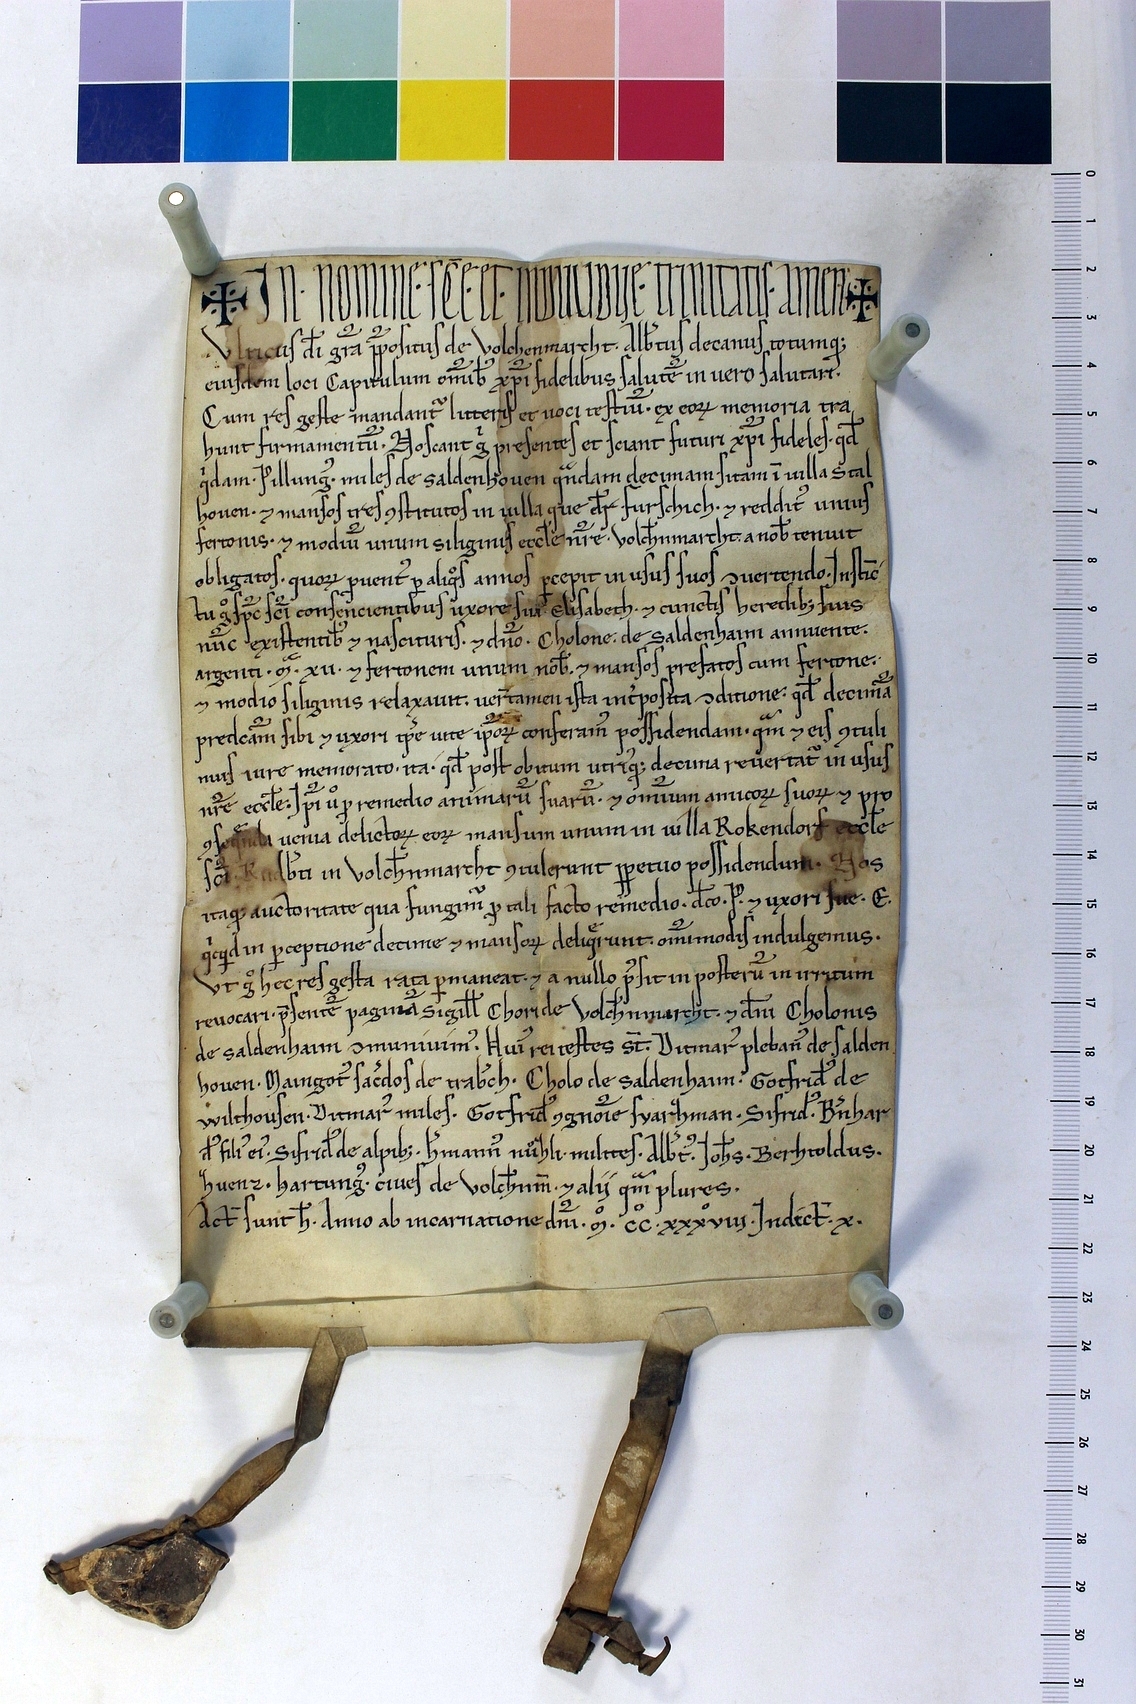 ✠ In nomine sc̄e et individue trinitatis amen ✠
Vlricus dī gr̄a p̄positus de Volchenmarcht. Alb̄tus decanus totumq;
eiusdem loci Capitulum om̄ib' xp̄i fidelibus salutē in vero salutari.
Cum res geste mandant᷑ litteris et voci testiū. ex eoꝝ memoria tra
hunt firmamentū. Noscant g̊ presentes et sciant futuri xp̄i fideles. qd̄
q̇dam. Pillung᷒. miles de saldenhoven quādam decimam sitam ī uilla Stal
hoven. ⁊ mansos tres ꝯstitutos in uilla que dr̄ furschich. ⁊ reddit᷒ unius
fertonis. ⁊ modiū unum siliginis eccl̄e nr̄e. Volch̄nmarcht. a nob̄ tenuit
obligatos. quoꝝ puent᷒ ꝑ aliq̊s annos ꝑcepit in usus suos ꝯuertendo. Instīc
tu g̊ sp̄c sc̄i consencientibus uxore sua Elisabeth. ⁊ cunctis heredib; suis
nūc existentib᷒ ⁊ nascituris. ⁊ dn̄o. Cholone. de Saldenhaim annuente.
argenti. m̄. xv. ⁊ fertonem unum nob̄. ⁊ mansos prefatos cum fertone.
⁊ modio siliginis relaxauit. ver̄tamen ista int̄posita ꝯditione. qd̄ decimā
predcam̄ sibi ⁊ uxori tp̄e uite ip̄oꝝ conferam᷒ possidendam. quā ⁊ eis ꝯtuli
mus iure memorato. ita. qd̄ post obitum utriq᷒; decima reuertat᷑ in usus
nr̄e eccl̄e. Ip̄i ů ꝑ remedio animarū suarū. ⁊ om̄ium amicoꝝ suoꝝ ⁊ pro
ꝯsequenda uenia delictoꝝ eoꝝ mansum unum in uilla Rokendorf eccl̄e
sc̄i. Rudb̄ti in Volch̄nmarcht ꝯtulerunt ꝑpetuo possidendum. Nos
itaq; auctoritate qua fungim᷒ ꝓ tali facto remedio. dc̄o. P. ⁊ uxori sue. E.
q̇cq̇d in ꝑceptione decime ⁊ mansoꝝ deliq̄runt. om̄imodis indulgemus.
Vt g̊ hec res gesta rata ꝑmaneat. ⁊ a nullo p̄sit in posterū in irritum
reuocari. p̄sentē paginā Sigill̄ Chori de Volch̄nmarcht. ⁊ dn̄i Cholonis
de saldenhaim ꝯmuniuim᷒. Hui᷒ rei testes st̄. Ditmar᷒ pleban᷒ de salden
hoven. Maingot᷒ sac̄dos de trab̄ch. Cholo de saldenhaim. Gotfrid᷒ de
wilthousen. Ditmar᷒ miles. Gotfrid᷒ ꝯgnōie swarz̄man. Sifrid᷒. B̄nhar
d᷒ fili᷒ ei᷒. Sifrid᷒ de alpib;. h̄mann᷒ nuͦhli. milites. Alb̄t᷒. Joh̄s. Berhtoldus.
huenz. hartung᷒. ciues de Volch̄nm̄. ⁊ alij quā plures.
Act̄ sunt h̄. Anno ab incarnatione dn̄i. M̊. CC̊. xxxviii. Indict̄. x.